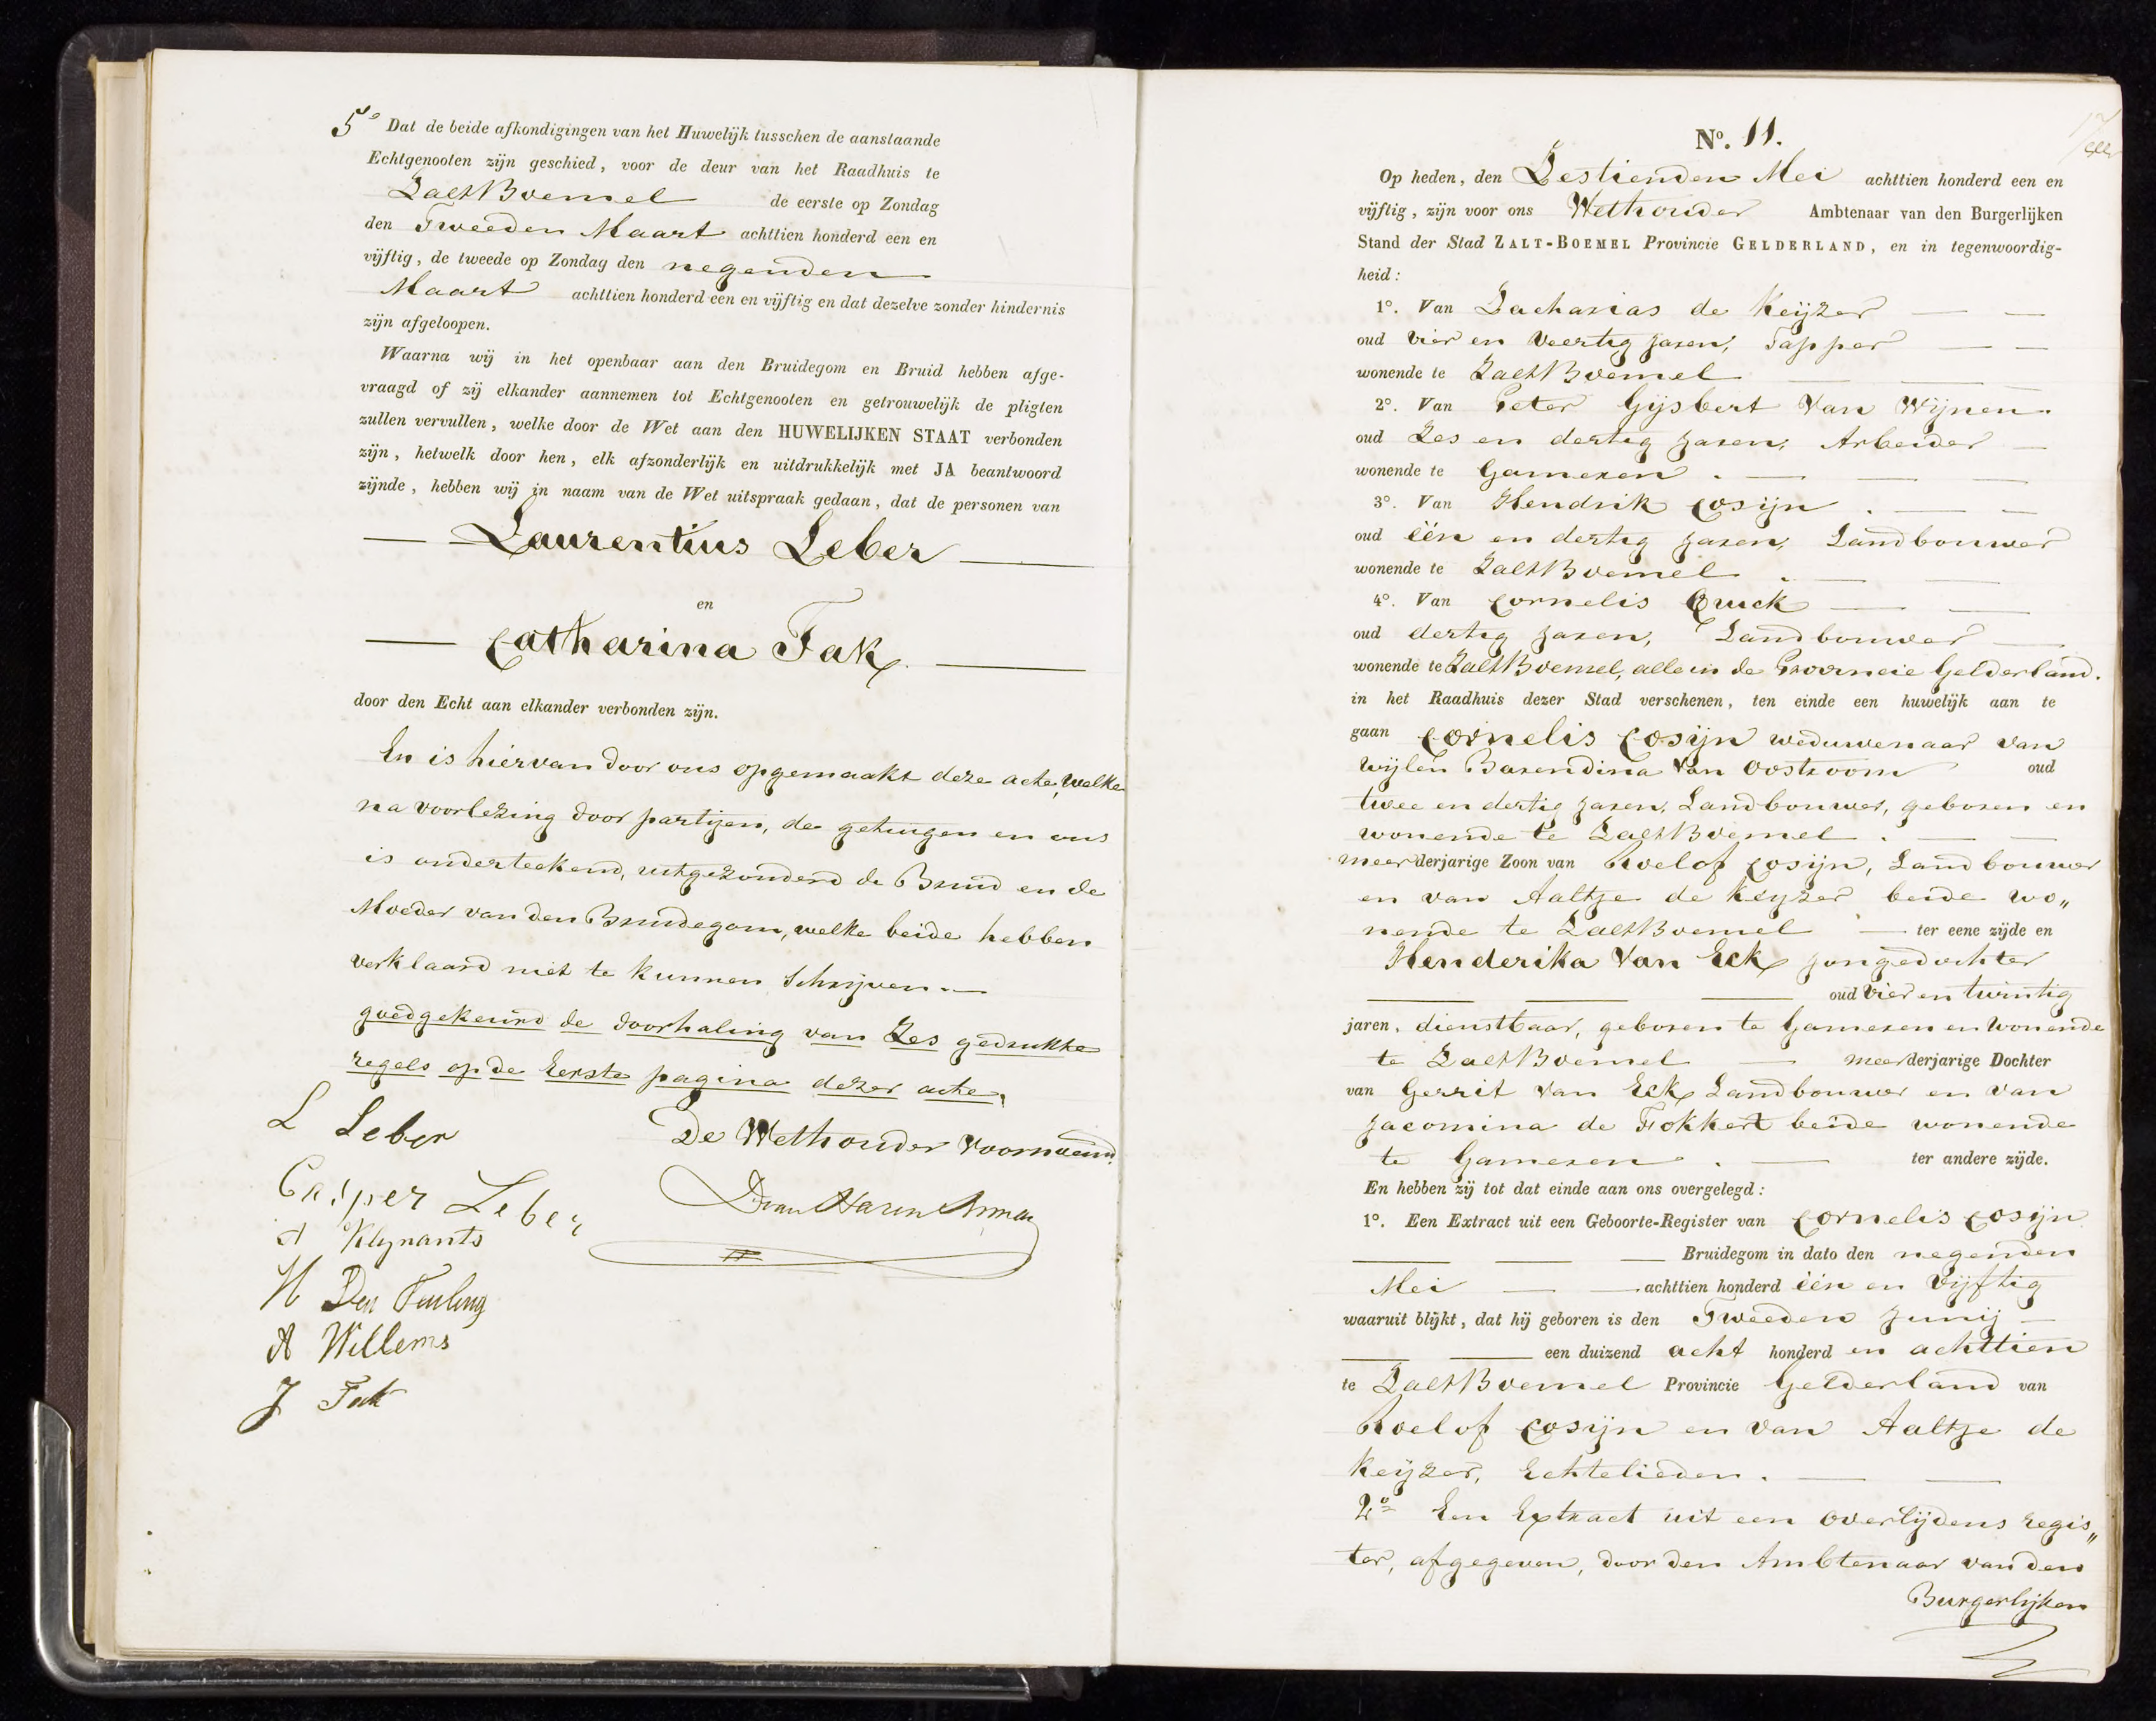 5° Dat de beide afkondigingen van het Huwelijk tusschen de aanstaande
Echtgenooten zijn geschied, voor de deur van het Raadhuis te
ZaltBoemel de eerste op Zondag
den Tweeden Maart achttien honderd een en
vijftig, de tweede op Zondag den negenden
Maart achttien honderd een en vijftig en dat dezelve zonder hindernis
zijn afgeloopen.
Waarna wij in het openbaar aan den Bruidegom en Bruid hebben afge-
vraagd of zij elkander aannemen tot Echtgenooten en getrouwelijk de pligten
zullen vervullen, welke door de Wet aan den HUWELIJKEN STAAT verbonden
zijn, hetwelk door hen, elk afzonderlijk en uitdrukkelijk met JA beantwoord
zijnde, hebben wij in naam van de Wet uitspraak gedaan, dat de personen van
Laurentius Leber
en
Catharina Fak
door den Echt aan elkander verbonden zijn.
En is hiervan door ons opgemaakt deze acte, welke
na voorlezing door partijen, de getuigen en ons
is onderteekend, uitgezonderd de Bruid en de
Moeder van den Bruidegom, welke beide hebben
verklaard niet te kunnen Schrijven
goedgekeurd de doorhaling van Zes gedrukte
regels op de Eerste pagina dezer acte.
L Leber
De Wethouder Voornoemd.
Casper Leber
A Klynants
H Den
A Willems
J Fak
N°. 11.
Op heden, den Zestienden Mei achttien honderd een en
vijftig, zijn voor ons Wethouder Ambtenaar van den Burgerlijken
Stand der Stad ZALT-BOEMEL Provincie GELDERLAND, en in tegenwoordig-
heid:
1°. Van Zacharias de Keijzer
oud vier en veertig jaren, Tapper
wonende te ZaltBoemel
2°. Van Peter Gijsbert Van Wijnen.
oud Zes en dertig jaren, Arbeider
wonende te Gameren.
3°. Van Hendrik Cosijn.
oud één en dertig jaren, Landbouwer
wonende te ZaltBoemel.
4°. Van Cornelis Quick
oud dertig jaren, Landbouwer
wonende te ZaltBoemel, alle in de Provincie Gelderland.
in het Raadhuis dezer Stad verschenen, ten einde een huwelijk aan te
gaan Cornelis Cosijn weduwenaar van
wijlen Barendina Van Oostroom oud
twee en dertig jaren, Landbouwer, geboren en
wonende te ZaltBoemel.
meerderjarige Zoon van Roelof Cosijn, Landbouwer
en van Aaltje de Keijzer beide wo„
nende te ZaltBoemel ter eene zijde en
Henderika Van Eck jongedochter
oud vier en twintig
jaren, dienstbaar, geboren te Gameren en wonende
te ZaltBoemel meerderjarige Dochter
van Gerrit Van Eck Landbouwer en van
Jacomina de Fokkert beide wonende
te Gameren. ter andere zijde.
En hebben zij tot dat einde aan ons overgelegd:
1°. Een Extract uit een Geboorte-Register van Cornelis Cosijn
Bruidegom in dato den negenden
Mei achttien honderd één en vijftig
waaruit blijkt, dat hij geboren is den Tweeden Junij
een duizend acht honderd en achttien
te ZaltBoemel Provincie Gelderland van
Roelof Cosijn en van Aaltje de
Keijzer, Echtelieden.
2° Een Extract uit een Overlijdens regis„
ter, afgegeven, door den Ambtenaar van den
Burgerlijken